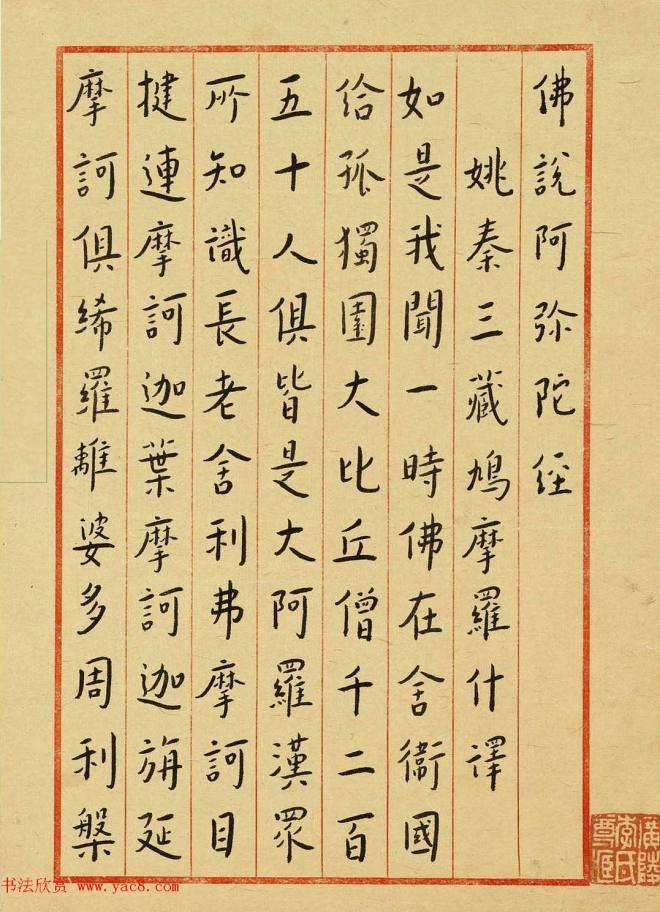 佛說阿弥陀経
姚秦三藏鳩摩羅什譯
如是我聞一時佛在舍衞國
给孤獨園大比丘僧千二百
五十人俱皆是大阿羅漢眾
所知識長老舍利弗摩訶目
揵連摩訶迦葉摩訶迦旃延
摩訶俱絺羅離婆多周利槃
廣陵
李氏
书法欣赏 www.yac8.com